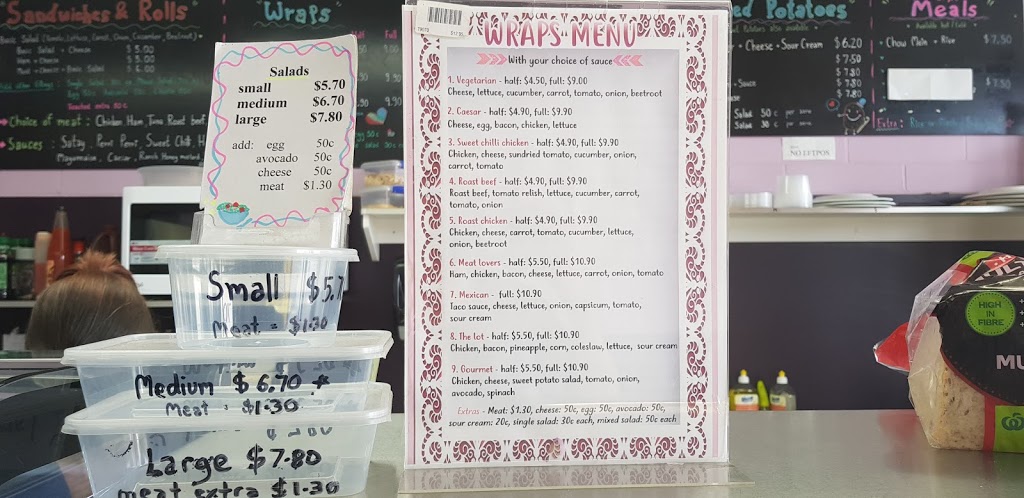 Sandwiches & Rolls
Basic Salad + Cheese $5.00
Ham + Cheese $5.00
$6.00
Toasted extra 50c
Choice of meat: Chicken Ham Tuna Roast beef
Sauces: Satay, Peri Peri, Sweet Chilli
Mayonnaise, Caesar, Ranch Honey mustard
Wraps
Salads
small $5.70
medium $6.70
large $7.80
add: egg 50c
avocado 50c
cheese 50c
meat $1.30
Small $5.7
Meat = $1.30
Medium $6.70 +
Meat $1.30
Large $7.80
meat extra $1.30
WRAPS MENU
With your choice of sauce
1. Vegetarian - half: $4.50, full: $9.00
Cheese, lettuce, cucumber, carrot, tomato, onion, beetroot
2. Caesar - half: $4.90, full: $9.90
Cheese, egg, bacon, chicken, lettuce
3. Sweet chilli chicken - half: $4.90, full: $9.90
Chicken, cheese, sundried tomato, cucumber, onion,
carrot, tomato
4. Roast beef - half: $4.90, full: $9.90
Roast beef, tomato relish, lettuce, cucumber, carrot,
tomato, onion
5. Roast chicken - half: $4.90, full: $9.90
Chicken, cheese, carrot, tomato, cucumber, lettuce,
onion, beetroot
6. Meat lovers - half: $5.50, full: $10.90
Ham, chicken, bacon, cheese, lettuce, carrot, onion, tomato
7. Mexican - full: $10.90
Taco sauce, cheese, lettuce, onion, capsicum, tomato,
sour cream
8. The lot - half: $5.50, full: $10.90
Chicken, bacon, pineapple, corn, coleslaw, lettuce, sour cream
9. Gourmet - half: $5.50, full: $10.90
Chicken, cheese, sweet potato salad, tomato, onion,
avocado, spinach
Extras - Meat: $1.30, cheese: 50c, egg: 50c, avocado: 50c,
sour cream: 20c, single salad: 30c each, mixed salad: 50c each
ed Potatoes
+ Cheese + Sour Cream $6.20
$7.50
Sauce $7.80
$7.80
$7.80
Salad 50c
Salad 30c
NO EFTPOS
Meals
Chow Mein + Rice $7.50
Extra:
HIGH
IN
FIBRE
MU